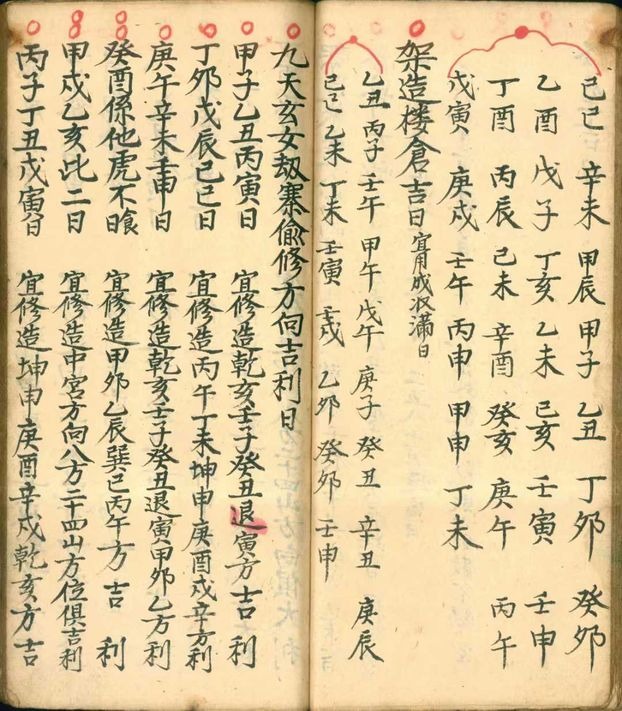 己巳 辛未 甲辰 甲子 乙丑 丁卯 癸卯
乙酉 戊子 丁亥 乙未 己亥 壬寅 壬申
丁酉 丙辰 己未 辛酉 癸亥 庚午 丙午
戊寅 庚戌 壬午 丙申 甲申 丁未
架造楼倉吉日 宜用成收滿日
乙丑 丙子 壬午 甲午 戊午 庚子 癸丑 辛丑 庚辰
己巳 乙未 丁未 壬寅 壬戌 乙卯 癸卯 壬申
九天玄女刼寨偷修方向吉利日
甲子乙丑丙寅日 宜修造乾亥壬子癸丑退寅方吉利
丁卯戊辰己巳日 宜修造丙午丁未坤申庚酉戌辛方利
庚午辛未壬申日 宜修造乾亥壬子癸丑退寅甲卯乙方利
癸酉係他虎不飡 宜修造甲卯乙辰巽巳丙午方吉利
甲戌乙亥此二日 宜修造中宮方向八方二十四山方位俱吉利
丙子丁丑戊寅日 宜修造坤申庚酉辛戌乾亥方吉